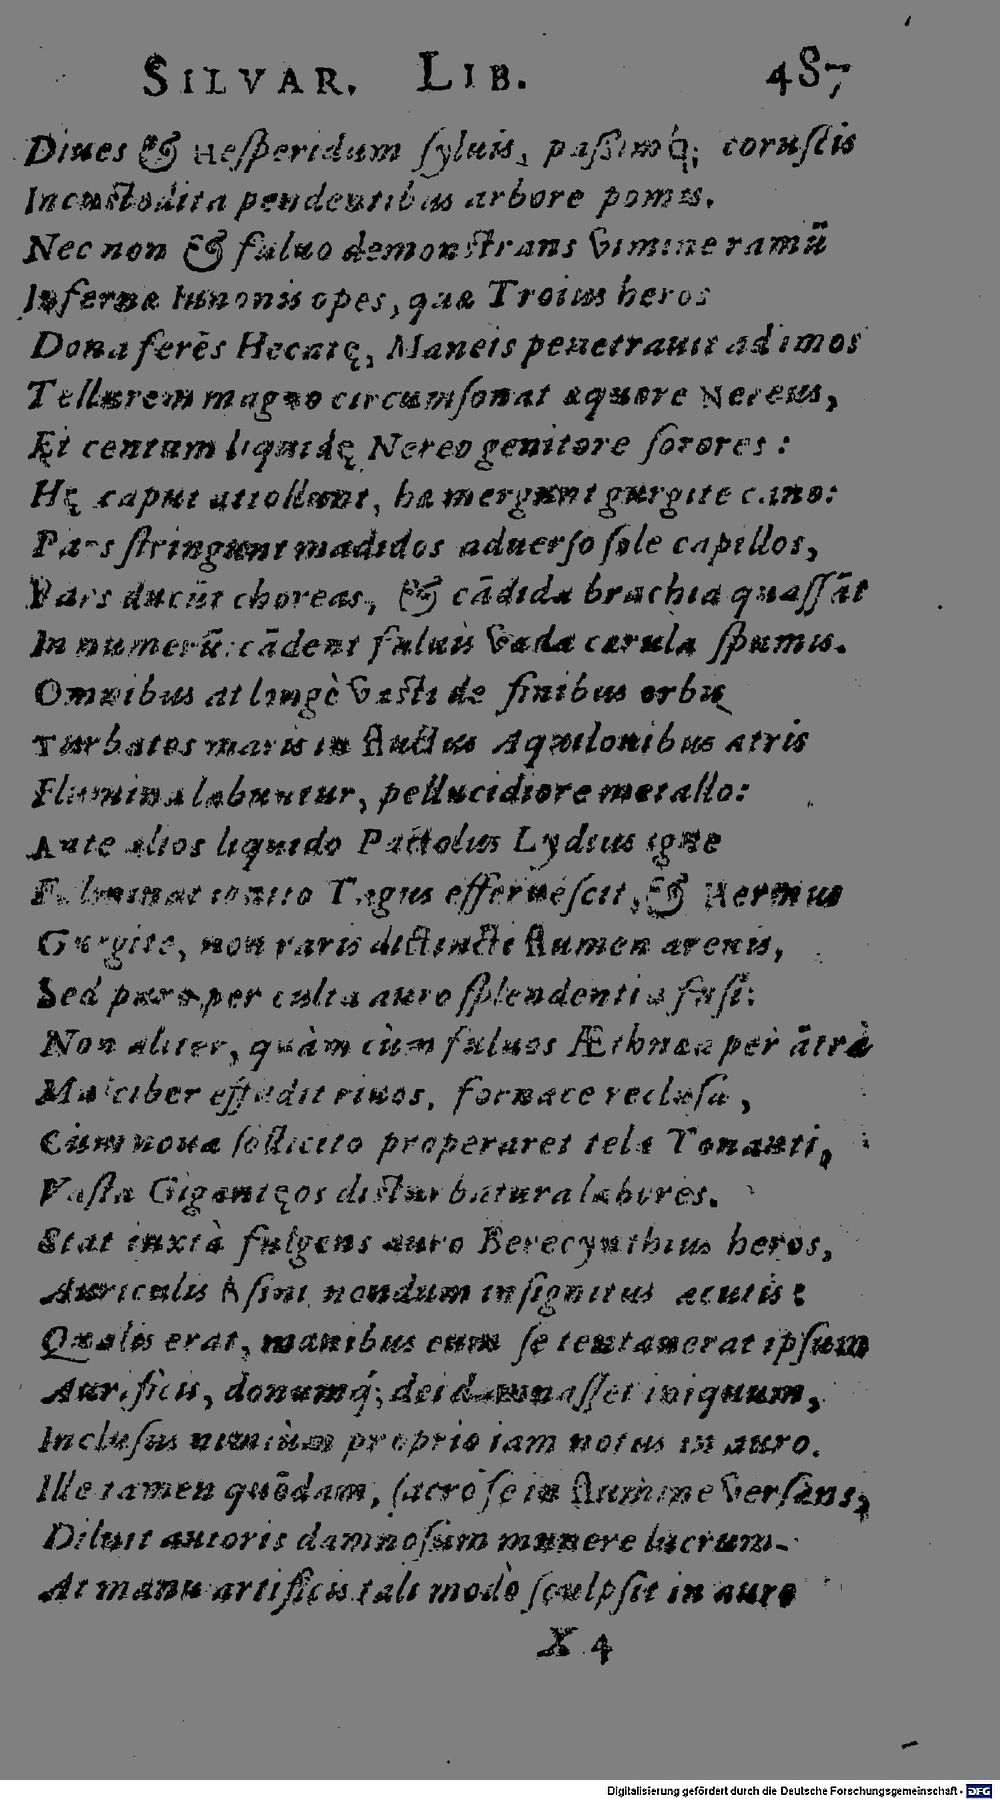 SILVAR. LIB. 487
Diues & Hesperidum syluis, passimq́; coruscis
Incustodita pendentibus arbore pomis.
Nec non & fuluo demonstrans vimine ramū
Infernæ Iunonis opes, quæ Troius heros
Dona ferēs Hecatę, Maneis penetrauit ad imos
Tellurem magno circumsonat æquore Nereus,
Et centum liquidę Nereo genitore sorores:
Hę caput attollunt, hæ mergunt gurgite cano:
Pars stringunt madidos aduerso sole capillos,
Pars ducūt choreas, & cādida brachia quassāt
In numerū: cādent fuluis vada cærula spumis.
Omnibus at longè vasti de finibus orbis
Turbatos maris in fluctus Aquilonibus atris
Flumina labuntur, pellucidiore metallo:
Ante alios liquido Pactolus Lydius igne
Fulminat ignito Tagus efferuescit, & Hermus
Gurgite, non raris distincti flumen arenis,
Sed puro per culta auro splendentia fusi:
Non aliter, quàm cùm fuluos Æthnæa per ātrà
Mulciber effudit riuos, fornace reclusa,
Cùm noua sollicito properaret tela Tonanti,
Vasta Gigantęos disturbatura labores.
Stat iuxtà fulgens auro Berecynthius heros,
Auriculis Asini nondum insignitus acutis:
Qualis erat, manibus cum se tentauerat ipsum
Aurificis, donumq́; dei damnasset iniquum,
Inclusus nimiùm proprio iam notus in auro.
Ille tamen quōdam, sacro se in flumine versans,
Diluit autoris damnosum munere lucrum.
At manu artificis tali modò sculpsit in auro
X 4
Digitalisierung gefördert durch die Deutsche Forschungsgemeinschaft - DFG